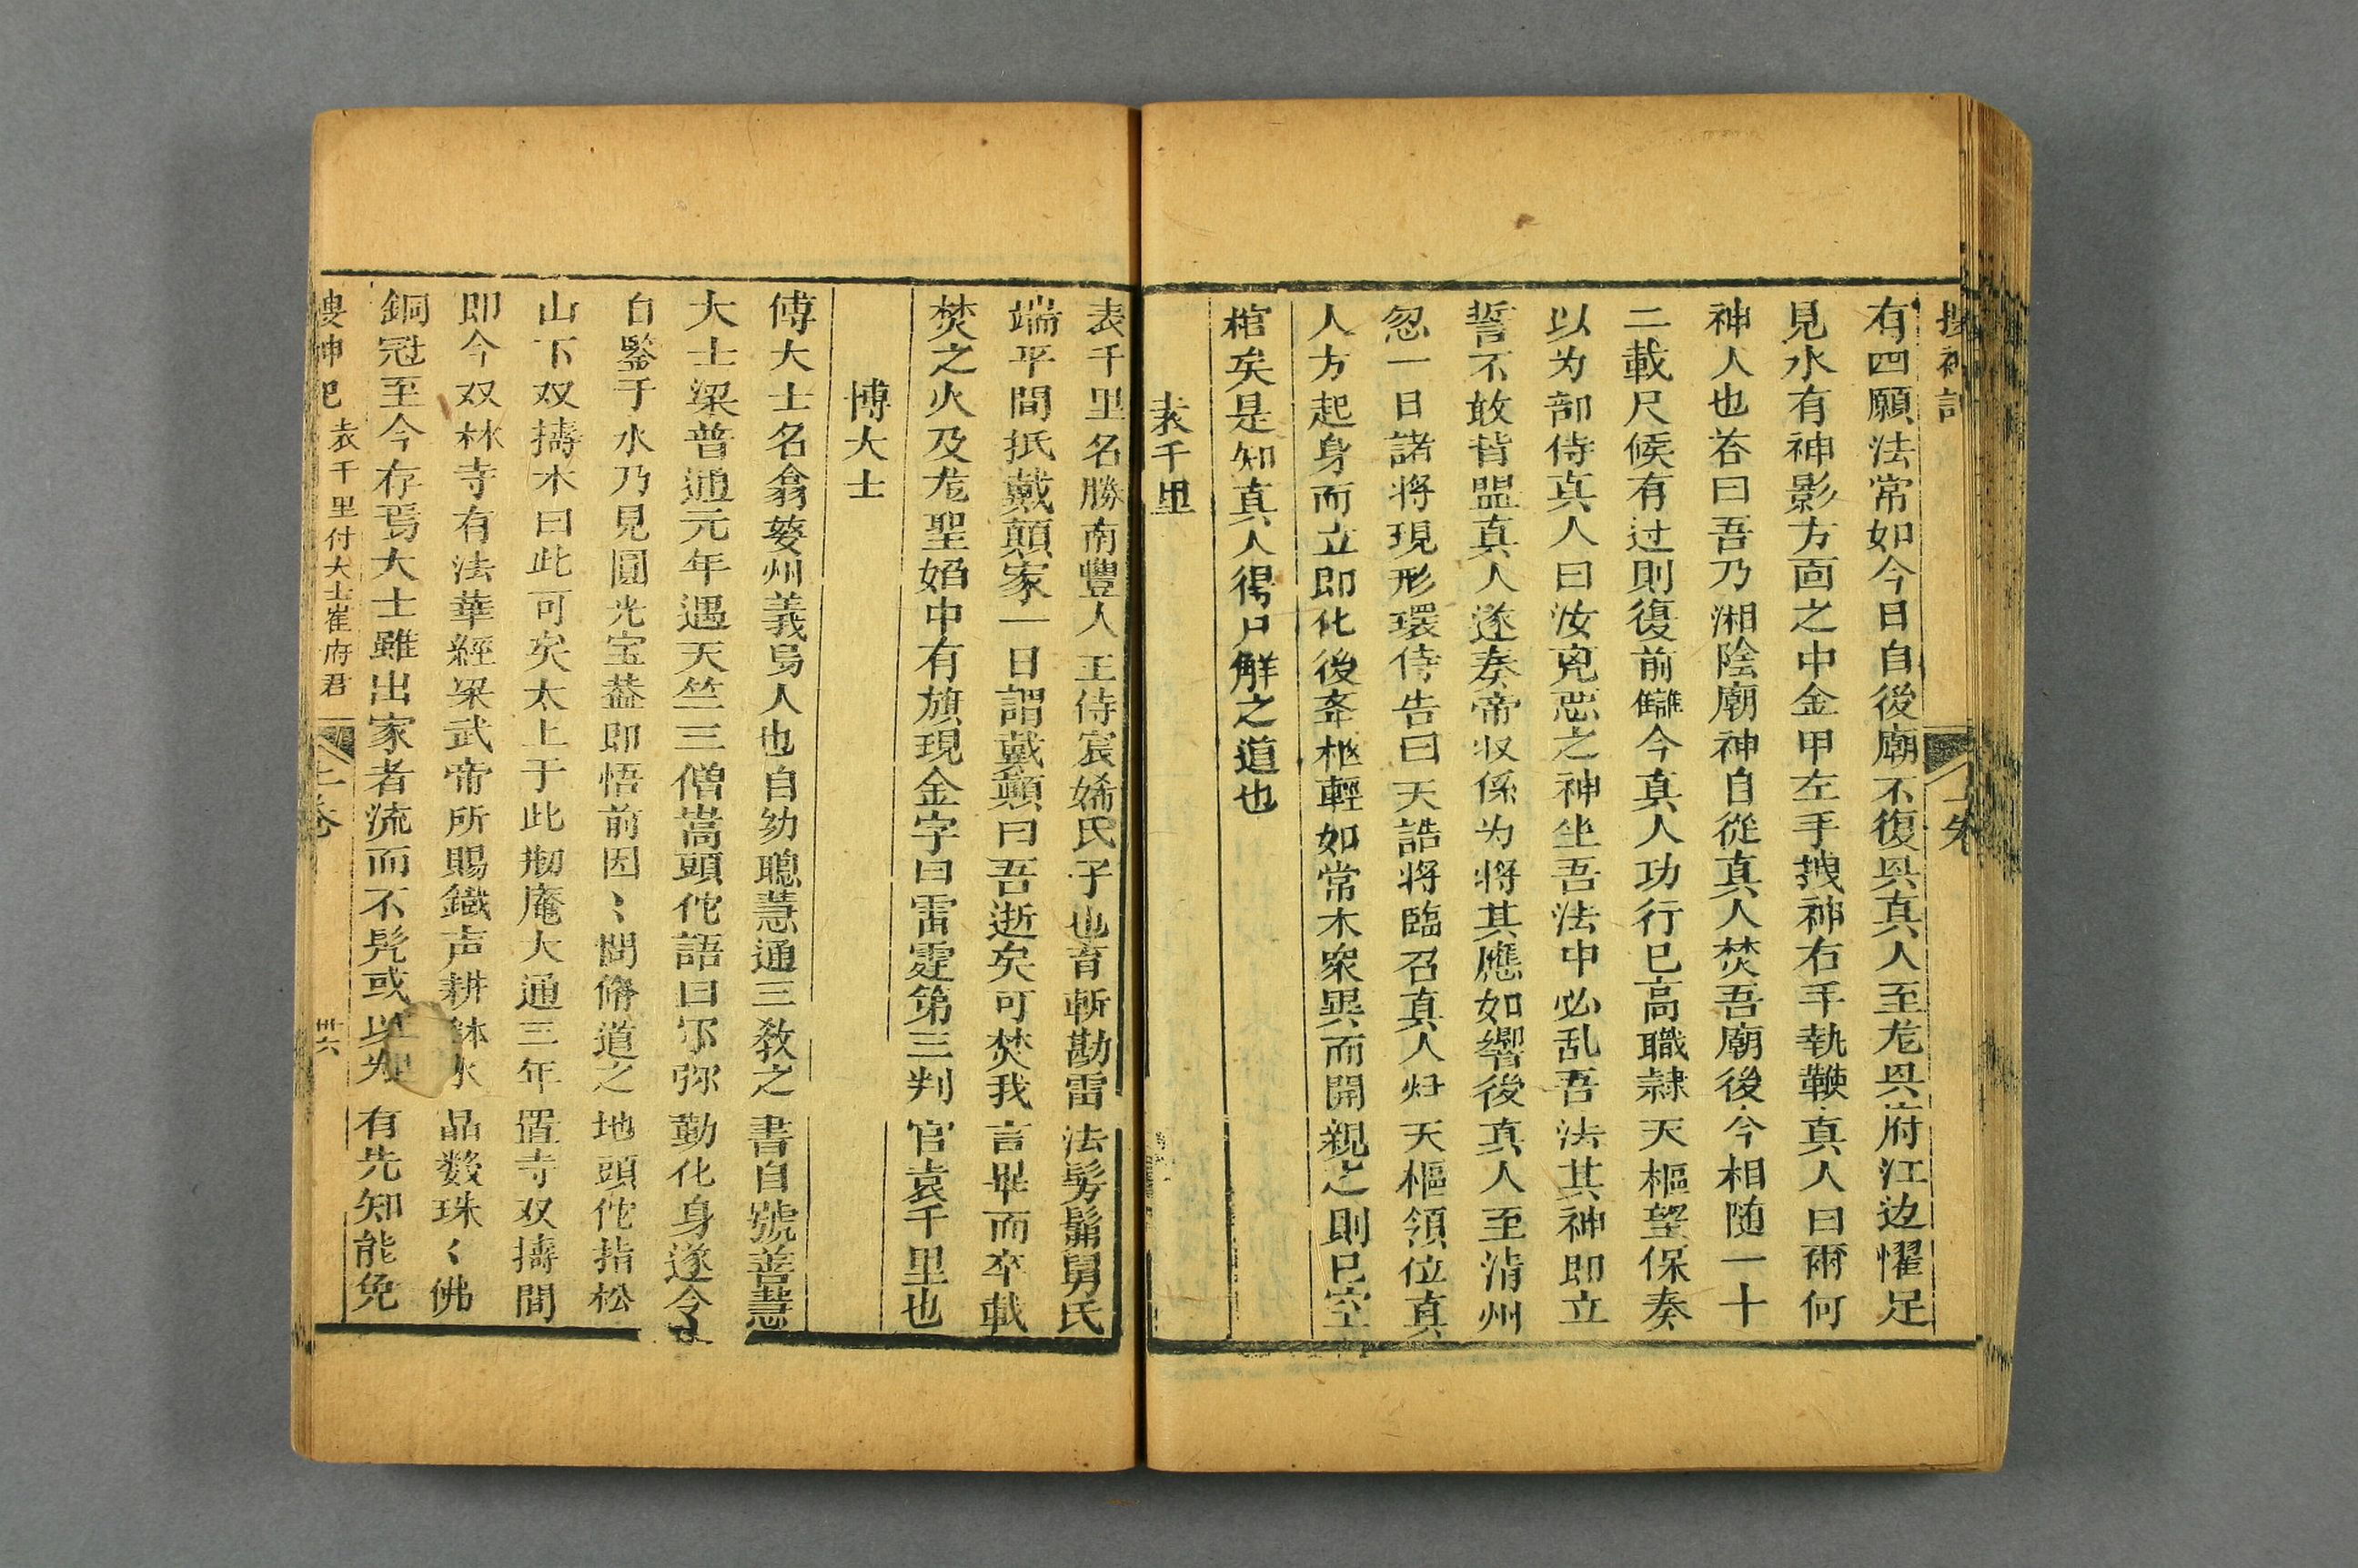 搜神記
上卷
有四願法常如今日自後廟不復㒷真人至尨㒷府江边懼足
見水有神影方面之中金甲左手拽神右手執鞭真人曰爾何
神人也荅曰吾乃湘陰廟神自從真人焚吾廟後今相随一十
二載尺候有过則復前讎今真人功行已高職隷天樞望保奏
以为部侍真人曰汝兇惡之神坐吾法中必乱吾法其神即立
誓不敢背盟真人遂奏帝収係为将其應如響後真人至清州
忽一日諸将現形環侍告曰天誥将臨召真人㱕天樞領位真
人方起身而立即化後夲柩輕如常木衆異而開視之則已空
棺矣是知真人得尸解之道也
袁千里
袁千里名勝南豐人王侍宸㛓氏子也育斬勘雷法髣髴舅氏
端平間抵戴顛家一日謂戴顛曰吾逝矣可焚我言畢而卒戴
焚之火及尨聖㛵中有旗現金字曰雷霆第三判官袁千里也
博大士
傅大士名翕婺州義烏人也自幼聰慧通三教之書自號善慧
大士梁普通元年遇天竺三僧嵩頭佗語曰尔弥勤化身遂令
自鑒于水乃見圓光宝葢即悟前因〻問脩道之地頭佗指松
山下双擣木曰此可矣太上于此剏庵大通三年置寺双擣間
即今双林寺有法華經梁武帝所賜鐵声耕鉢水晶数珠〻佛
銅冠至今存焉大士雖出家者流而不髠或以为有先知能免
搜神記 袁千里付大士崔府君 上卷 卅六